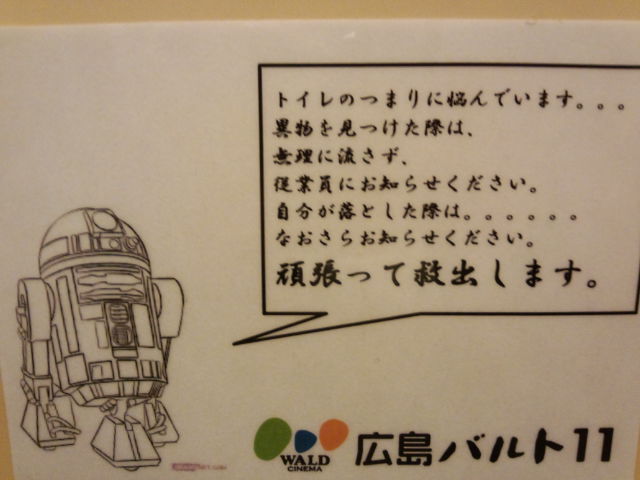 トイレのつまりに悩んでいます。。。
異物を見つけた際は、
無理に流さず、
従業員にお知らせください。
自分が落とした際は。。。。。。
なおさらお知らせください。
頑張って救出します。
WALD
CINEMA
広島バルト11